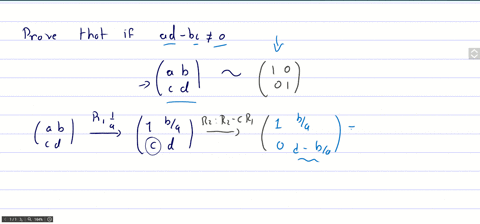 Prove that if ad-bc ≠ 0
→ (a b; c d) ~ (1 0; 0 1)
(a b; c d) R₁ 1/a → (1 b/a; c d) R₂: R₂-cR₁ → (1 b/a; 0 d - b/a)